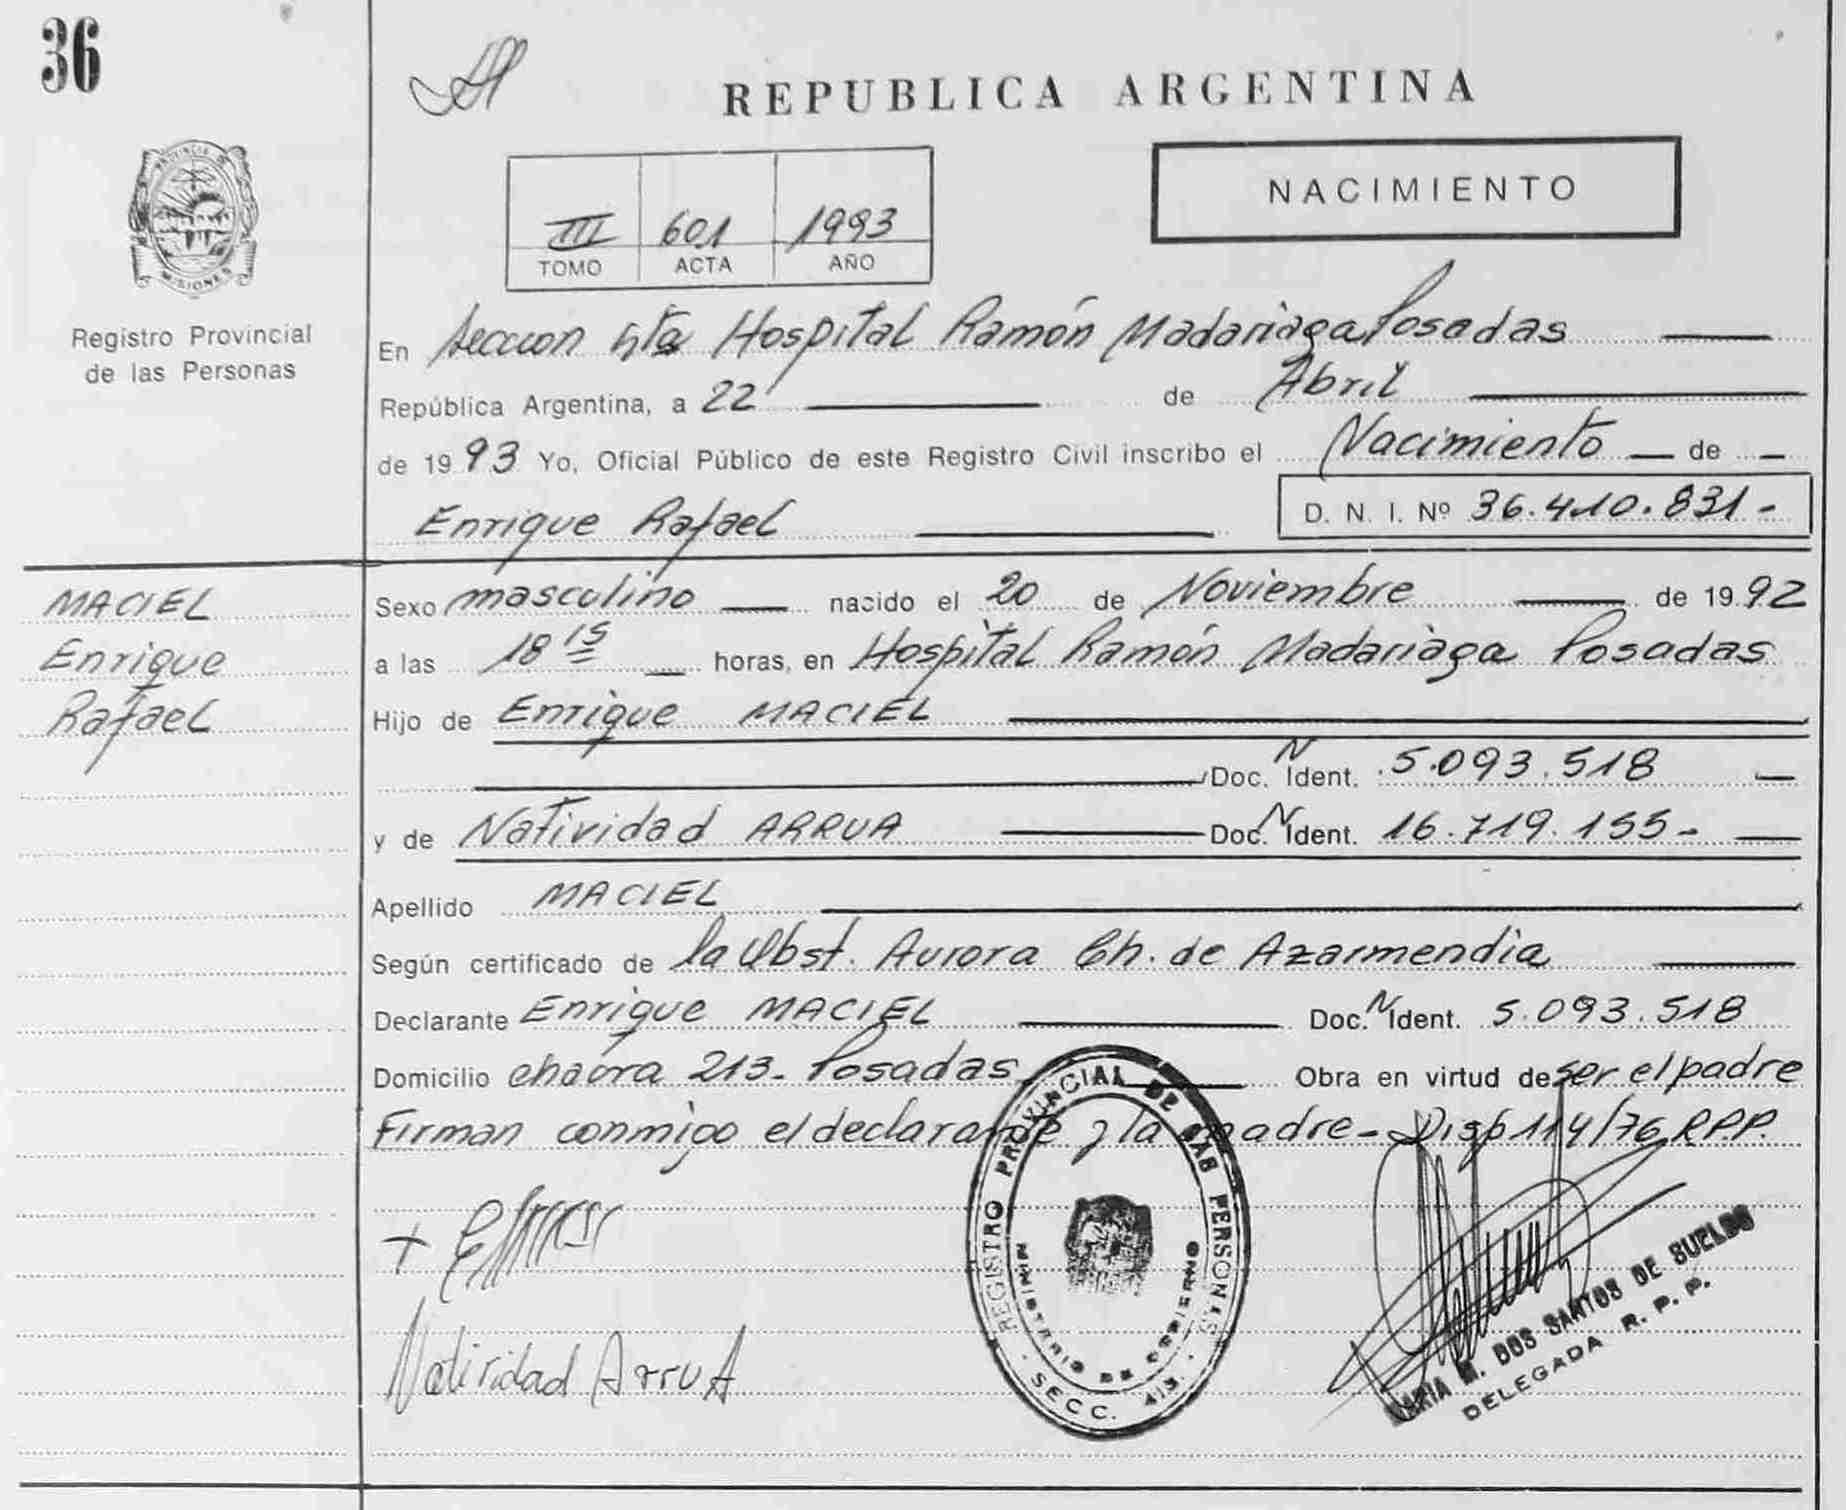 36
REPUBLICA ARGENTINA
NACIMIENTO
III 601 1993
TOMO ACTA AÑO
PROVINCIA DE MISIONES
Registro Provincial
de las Personas
En Seccion 4ta Hospital Ramón Madariaga Posadas
República Argentina, a 22 de Abril
de 1993 Yo, Oficial Público de este Registro Civil inscribo el Nacimiento de
Enrique Rafael D. N. I. Nº 36.410.831-
MACIEL
Enrique
Rafael
Sexo masculino nacido el 20 de Noviembre de 1992
a las 18 15 horas, en Hospital Ramón Madariaga Posadas
Hijo de Enrique MACIEL
Doc. N Ident. 5.093.518
y de Natividad ARRUA Doc. N Ident. 16.719.155-
Apellido MACIEL
Según certificado de la Obst. Aurora Ch. de Azarmendia
Declarante Enrique MACIEL Doc. N Ident. 5.093.518
Domicilio chacra 213- Posadas Obra en virtud de ser el padre
Firman conmigo el declarante y la madre- Disp 114/76 R.P.P.
REGISTRO PROVINCIAL DE LAS PERSONAS
MINISTERIO DE GOBIERNO
SECC.
Natividad Arrua
MARIA M. DOS SANTOS DE BUELDO
DELEGADA R. P. P.